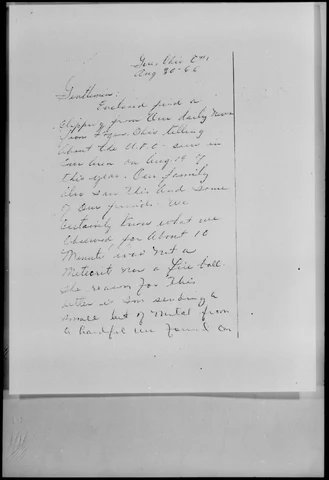 Aug 30-66
Gentlemen:
Enclosed find a
clipping from our daily News
from Piqua, Ohio telling
about the U.F.O. seen in
our area on Aug 19 of
this year. Our family
also saw this and some
of our friends. We
certainly know what we
observed for about 10
minutes was not a
meteorit nor a fire ball.
The reason for this
letter is I'm sending a
small bit of metal from
a handful we found on